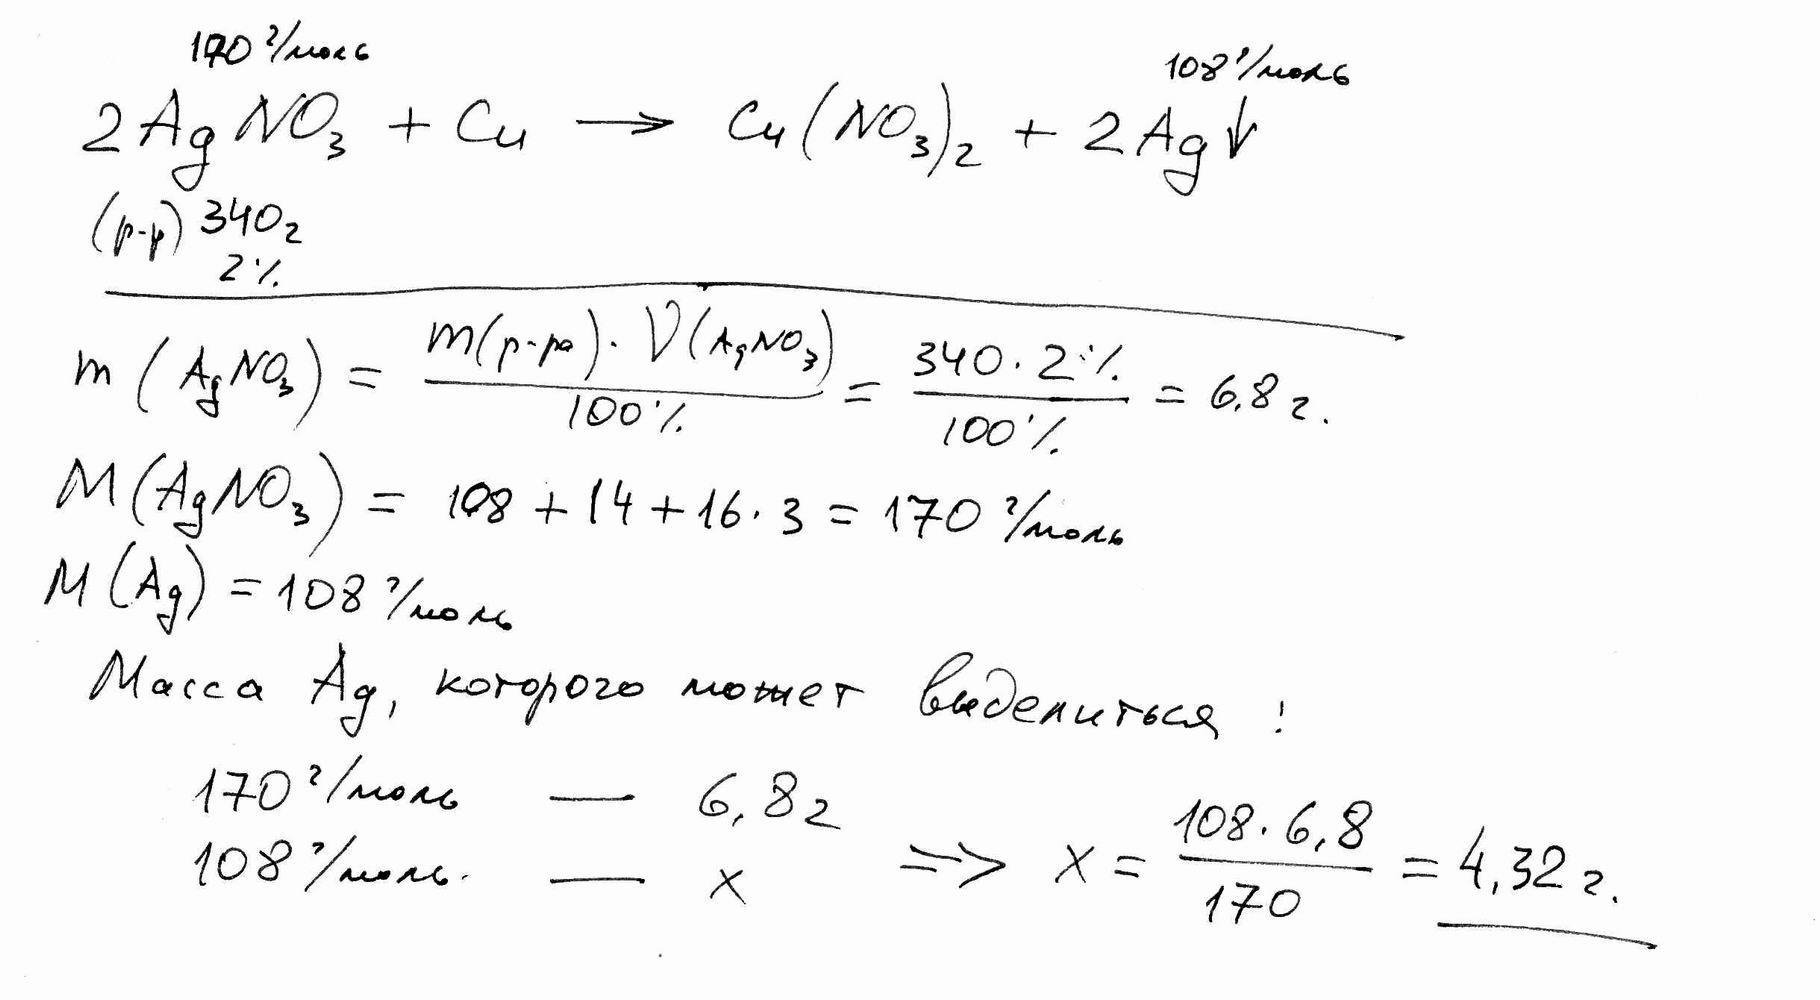 170 г/моль 108 г/моль
2AgNO₃ + Cu → Cu(NO₃)₂ + 2Ag↓
(р-р) 340г
2%
m(AgNO₃) = m(р-ра) · V(AgNO₃) / 100% = 340 · 2% / 100% = 6,8 г.
M(AgNO₃) = 108 + 14 + 16 · 3 = 170 г/моль
M(Ag) = 108 г/моль
Масса Ag, которого может выделиться:
170 г/моль — 6,8г
108 г/моль. — x => x = 108 · 6,8 / 170 = 4,32 г.